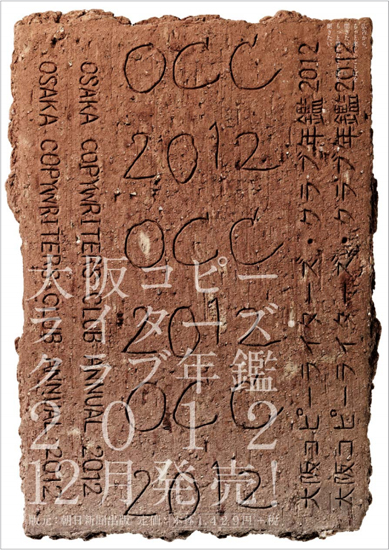 OCC
2012
OCC
2012
OCC
2012
OSAKA COPYWRITERS CLUB ANNUAL 2012
OSAKA COPYWRITERS CLUB ANNUAL 2012
大阪コピーライターズ・クラブ年鑑2012
大阪コピーライターズ・クラブ年鑑2012
大阪コピー
ライターズ
クラブ年鑑
2012
12月発売!
版元：朝日新聞出版 定価：本体 円+税